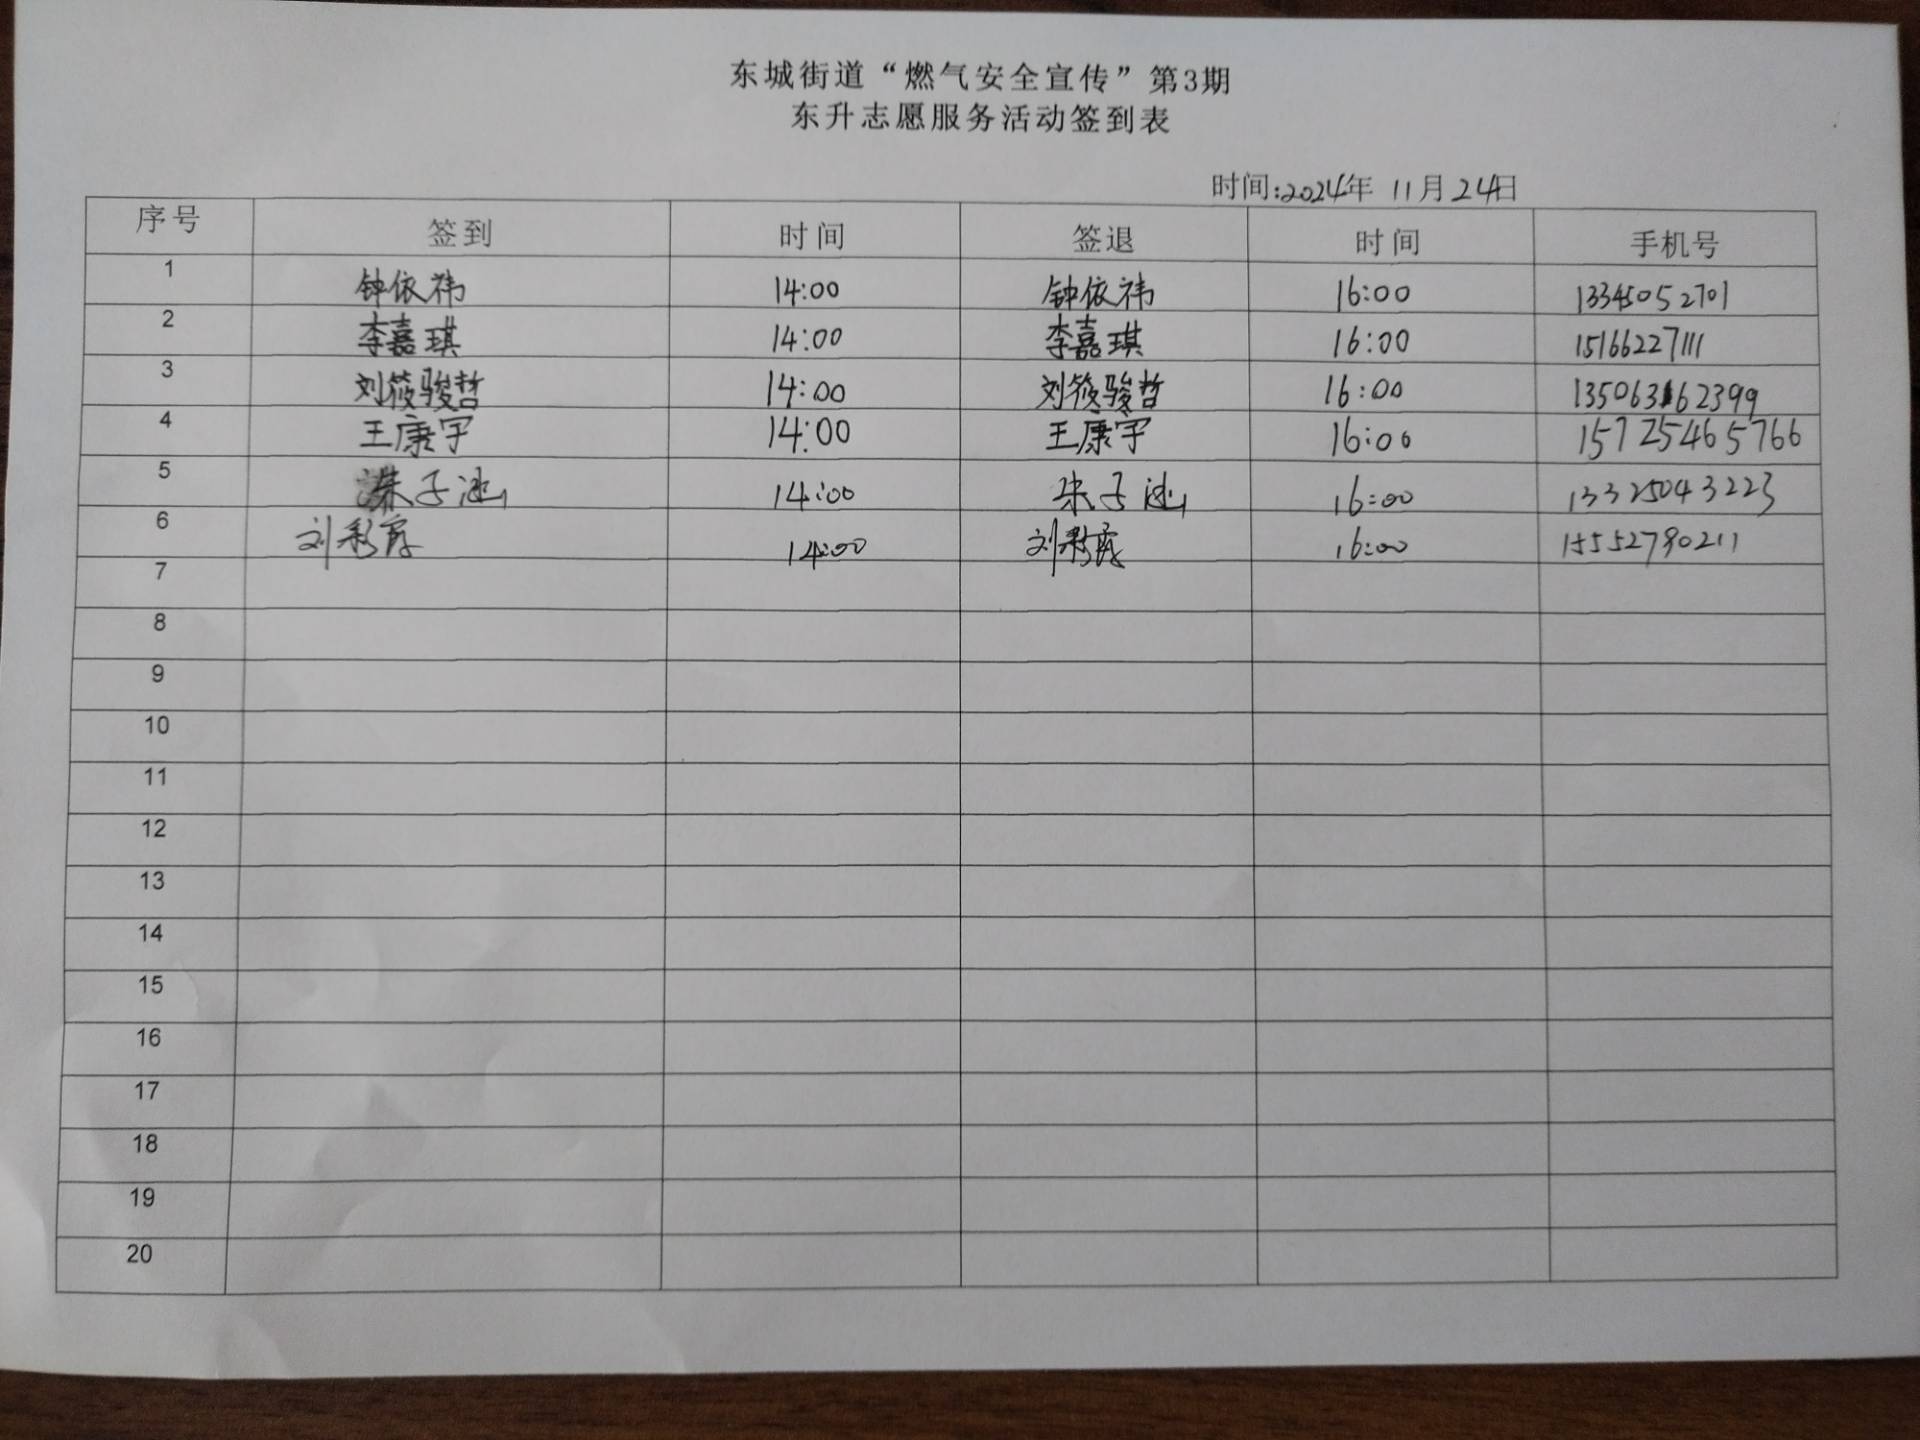 东城街道“燃气安全宣传”第3期
东升志愿服务活动签到表
时间:2024年 11月24日
序号 签到 时间 签退 时间 手机号
1 钟依祎 14:00 钟依祎 16:00 13345052701
2 李嘉琪 14:00 李嘉琪 16:00 15166227111
3 刘筱骏哲 14:00 刘筱骏哲 16:00 135063162399
4 王康宇 14:00 王康宇 16:00 15725465766
5 朱子涵 14:00 朱子涵 16:00 13325043223
6 刘彩霞 14:00 刘彩霞 16:00 15552790211
7
8
9
10
11
12
13
14
15
16
17
18
19
20